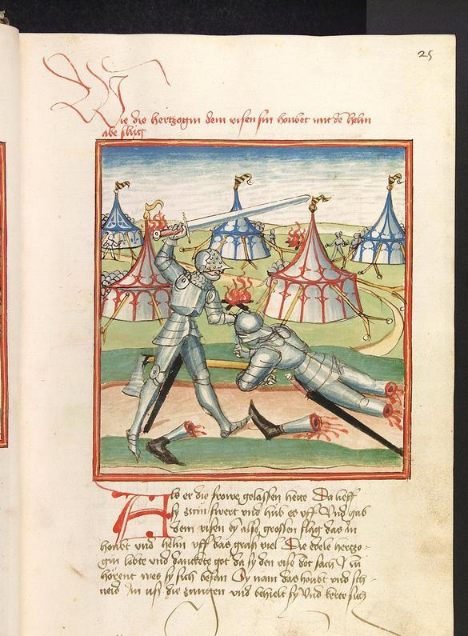 25
Wie die hertzogin dem risen sin houbet mit de helm
abe slüg
Als er die frowe gelassen hette Da lieff
sy zum swert vnd hüb es vff Vnd gab
dem risen ey also grossen slag das im
houbt vnd helm vff das graß viel Die edele hertzo-
gin lobte vnd danckete got da sy den rise dot sach
horent wes sy sich besan Sy nam das houbt vnd sch-
neid Im vß die zungen vnd behielt sy Vnd kerte sich